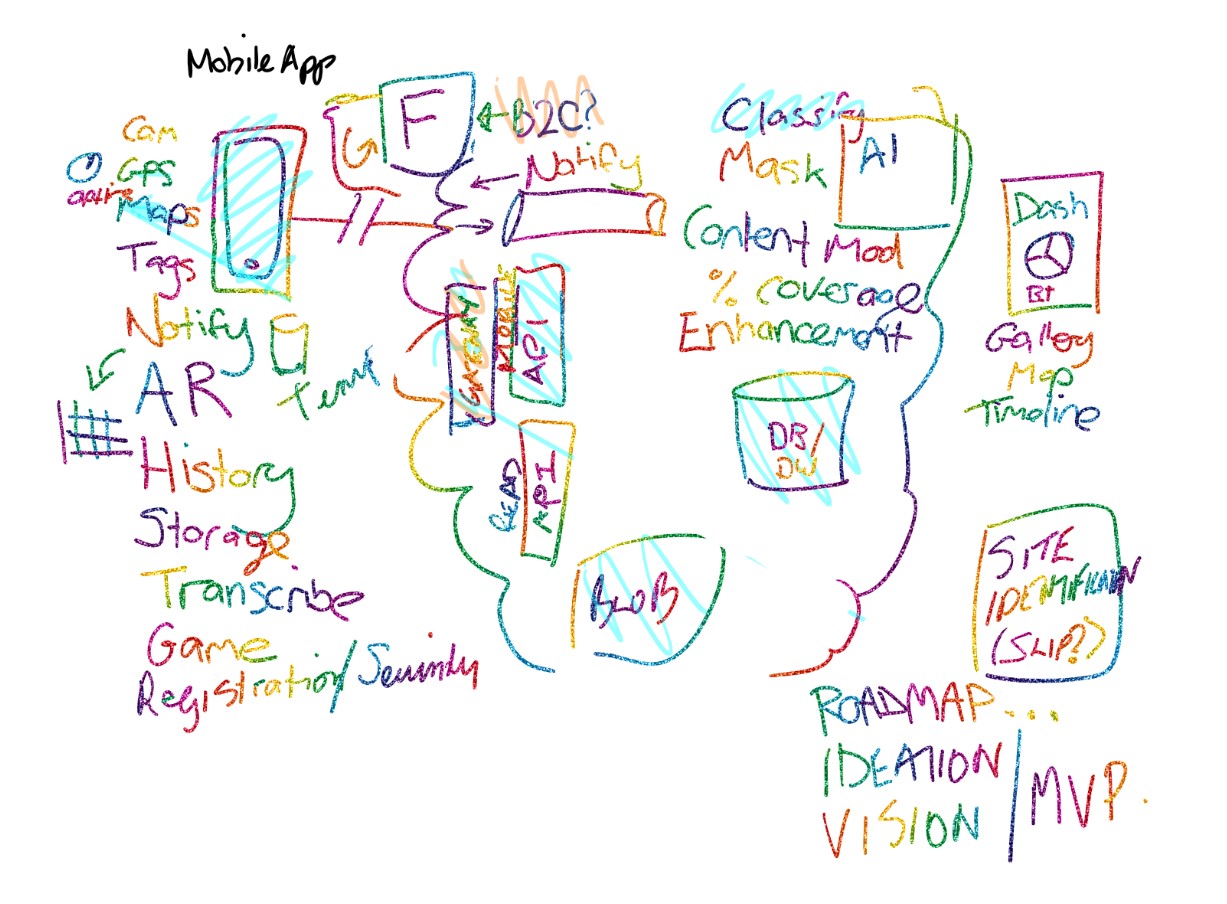 Mobile App
Cam
GPS
Maps
Tags
Notify
AR
History
Storage
Transcribe
Game
Registration/Security
F
B2C?
Notify
GATEWAY
MOBILE
API
READ
API
BLOB
Classify
Mask
AI
Content Mod
% Coverage
Enhancement
DB/
DW
Dash
Gallery
Map
Timeline
SITE
IDENTIFICATION
(SLIP??)
ROADMAP...
IDEATION
VISION / MVP.